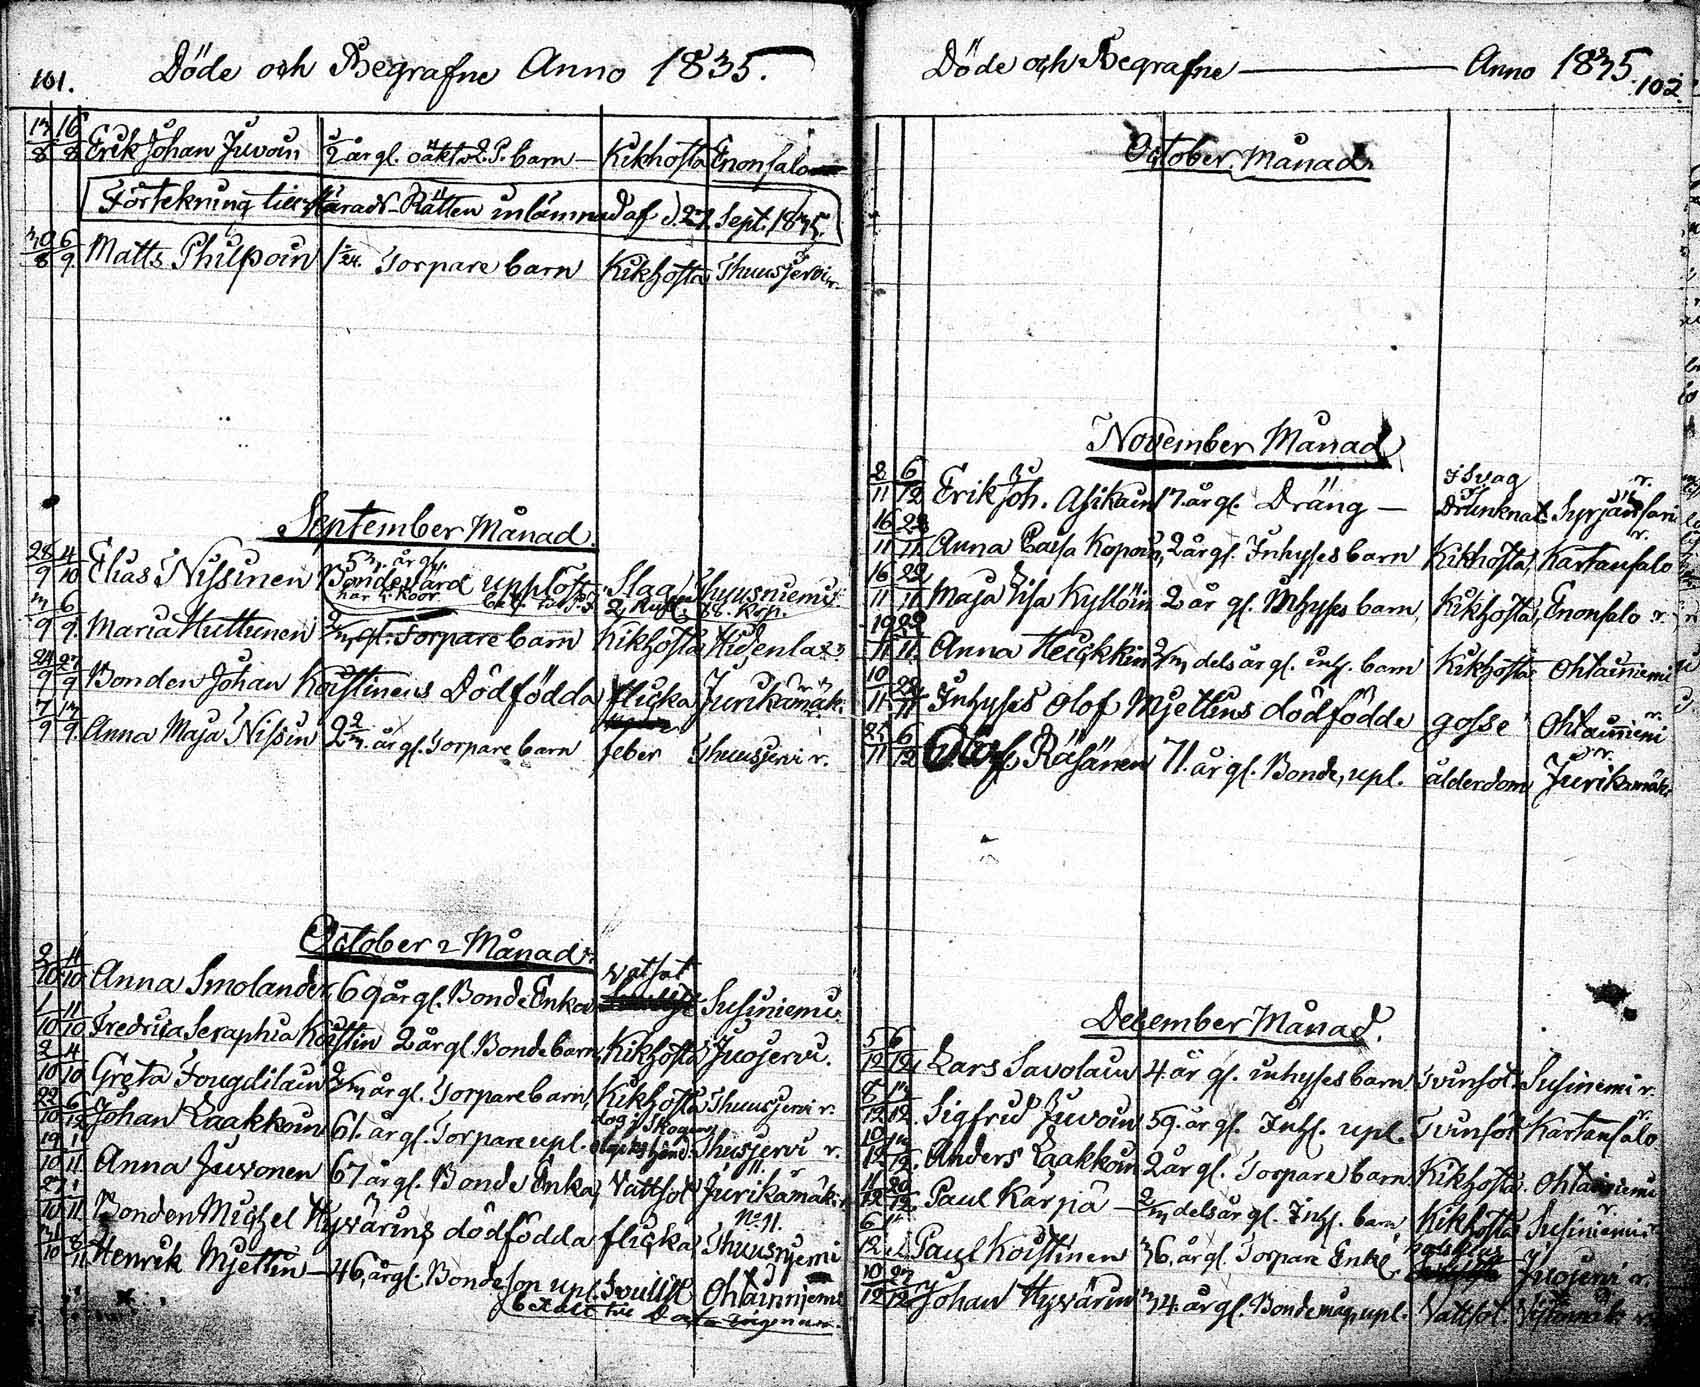 101. Döde och Begrafne Anno 1835.
13/8 16/8 Erik Johan Juvoin 1/2 år gl. oäkta barn Kikhosta Enonsalo
Förtekning till Härads-Rätten inlämnad af d. 27. Sept. 1835.
30/8 6/9 Matts Philpoin Torpare barn Kikhosta Thuusjervi r.
September Månad.
28/9 4/10 Elias Nissinen 53, år gl. Slag Thuusniemi
Bondevärd upplöst
/9 6/9 Maria Huttunen Torpare barn Kikhosta Hidenlax
24/9 27/9 Bonden Johan Koistinens Dödfödda flicka Jurikamäk.
7/9 13/9 Anna Maja Nissin år gl. Torpare barn feber Thuusjervi r.
October Månad.
2/10 4/10 Anna Smolander, 69 år gl. Bonde Enka vatsot Susiniemi
1/10 11/10 Fredrica Seraphia Koistin 2 år gl. Bonde barn, Kikhosta Juojervi.
2/10 4/10 Greta Fougdilain år gl. Torpare barn, Kikhosta Thuusjervi r.
22/10 6/12 Johan Laakkoin 61. år gl. Torpare upl. Thusjervi r.
dog i Skogen
19/10 1/11 Anna Juvonen 67 år gl. Bonde Enka, Vattsot Jurikamäki
27/10 1/11 Bonden Michel Hyvärins dödfödda flicka, Thuusnjemi
No 11.
31/10 8/11 Henrik Mjettin 46, år gl. Bonde son upl. Ohtainnjemi
Döde och Begrafne Anno 1835. 102.
October Månad.
November Månad
2/11 6/12 Erik Joh. Asikain 17. år gl. Dräng Drunknat Syrjänsari
i Svag
16/11 22/11 Anna Caisa Kopoin, 2 år gl. Inhyses barn Kikhosta, Kartansalo
16/11 22/11 Maja Lisa Kyllöin 2 år gl. Inhyses barn, Kikhosta, Enonsalo r.
19/11 22/11 Anna Heickkin dels år gl. inh. barn Kikhosta Ohtainiemi
10/11 22/11 Inhyses Olof Mjettins dödfödde gosse Ohtainiemi
25/11 6/12 Olof Räsänen 71. år gl. Bonde, upl. ålderdom Jurikamäki
December Månad.
5/12 6/12 Lars Savolain 4 år gl. inhyses barn Tvinsot Susiniemi r.
8/12 Sigfrid Juvoin 59. år gl. Inh. upl. Tvinsot Kartansalo
10/12 Anders Laakkoin 2 år gl. Torpare barn Kikhosta Ohtainiemi
11/12 20/12 Paul Kärpä dels år gl. Inh. barn Kikhosta Susiniemi r.
6/12 Paul Koistinen 36, år gl. Torpare Enkl. Juojervi r.
10/12 27/12 Johan Hyvärin 34 år gl. Bonde måg, upl. Vattsot